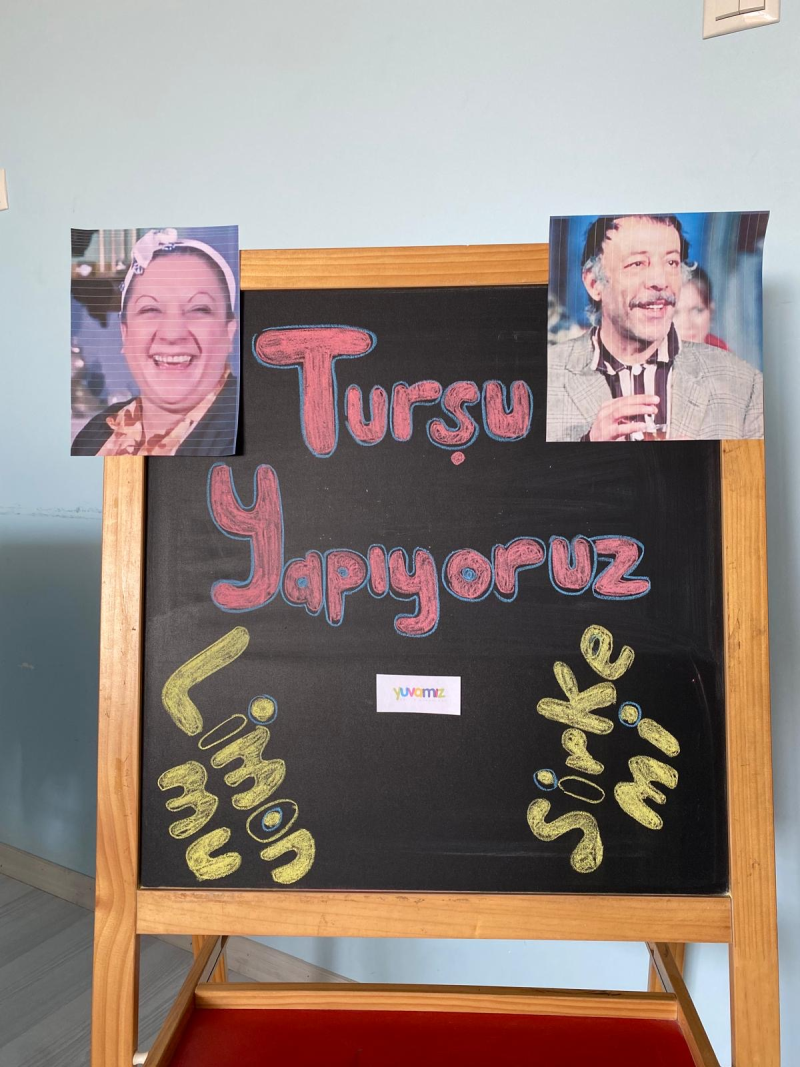 Turşu
Yapıyoruz
Limon
mu
yuvamız
Sirke
mi